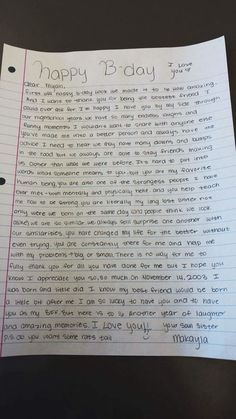 Happy B-day
I Love
you ♥
Dear
First Happy B-day wow we made it to
And I want to thank you for being the bestest friend I
could ever ask for I'm happy I have you by my side through
our years we have so many endless laughs and
funny memories I wouldn't want to share with anyone else
you've made me into a better person and always have the
advice I need to hear we may have many downs and bumps
in the road but we always are able to stay friends making
us closer than what we were before. It's hard to put into
words what someone means to you but you are my favorite
human being you are one of the strongest people I have
ever met both mentally and physically and you help teach
me how to be strong you are literally my long lost sister not
only were we born on the same day and people think we look
alike we are so similar we always surprise one another with
our similarities you have changed my life for the better without
even trying. You are constantly there for me and help me
with my problems big or small. There is no way for me to
fully thank you for all you have done for me but I hope you
know I appreciate you so, so much on November 14, 2003 I
was born and little did I know my best friend would be born
a little bit after me I am so lucky to have you and to have
you as my BFF But here is to another year of laughter
and amazing memories I Love you!! your Soul Sister
P.S. Do you want some rats tail Makayla